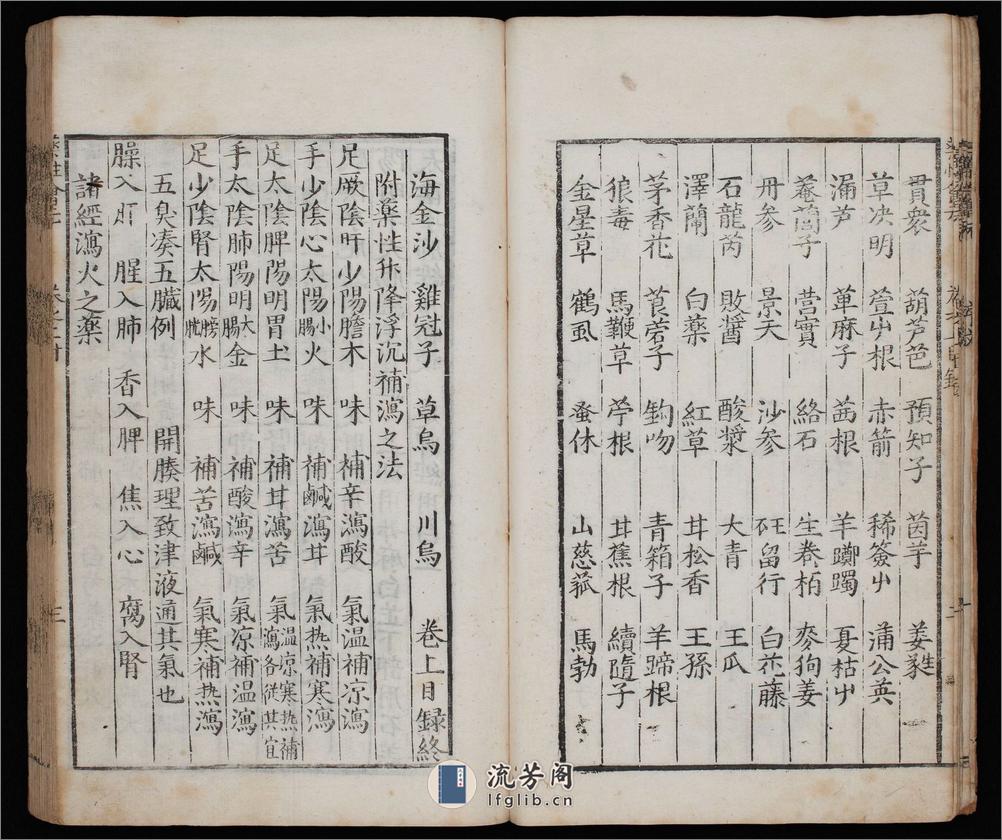 貫衆 葫芦芭 預知子 茵芋 姜甡
草决明 萱屮根 赤箭 稀簽屮 蒲公英
漏芦 萆麻子 茜根 羊躑躅 夏枯屮
菴䕡子 营實 絡石 生卷栢 麥狗姜
丹参 景天 沙参 砡留行 白花藤
石龍芮 敗醬 酸漿 大青 王瓜
澤蘭 白薬 紅草 甘松香 王孫
茅香花 莨菪子 鈎吻 青箱子 羊蹄根
狼毒 馬鞭草 苧根 甘蕉根 續隨子
金星草 鶴虱 蚤休 山慈菰 馬勃
海金沙 雞冠子 草烏 川烏 卷上目録終
附藥性升降浮沉補瀉之法
足厥陰肝少陽膽木 味 補辛瀉酸 氣温補凉瀉
手少陰心太陽小腸火 味 補鹹瀉甘 氣热補寒瀉
足太陰脾陽明胃土 味 補甘瀉苦 氣温凉寒热補瀉各従其宜
手太陰肺陽明大腸金 味 補酸瀉辛 氣凉補温瀉
足少陰腎太陽膀胱水 味 補苦瀉鹹 氣寒補热瀉
五臭凑五臟例 開腠理致津液通其氣也
臊入肝 腥入肺 香入脾 焦入心 腐入腎
諸經瀉火之藥
流芳阁
lfglib.cn